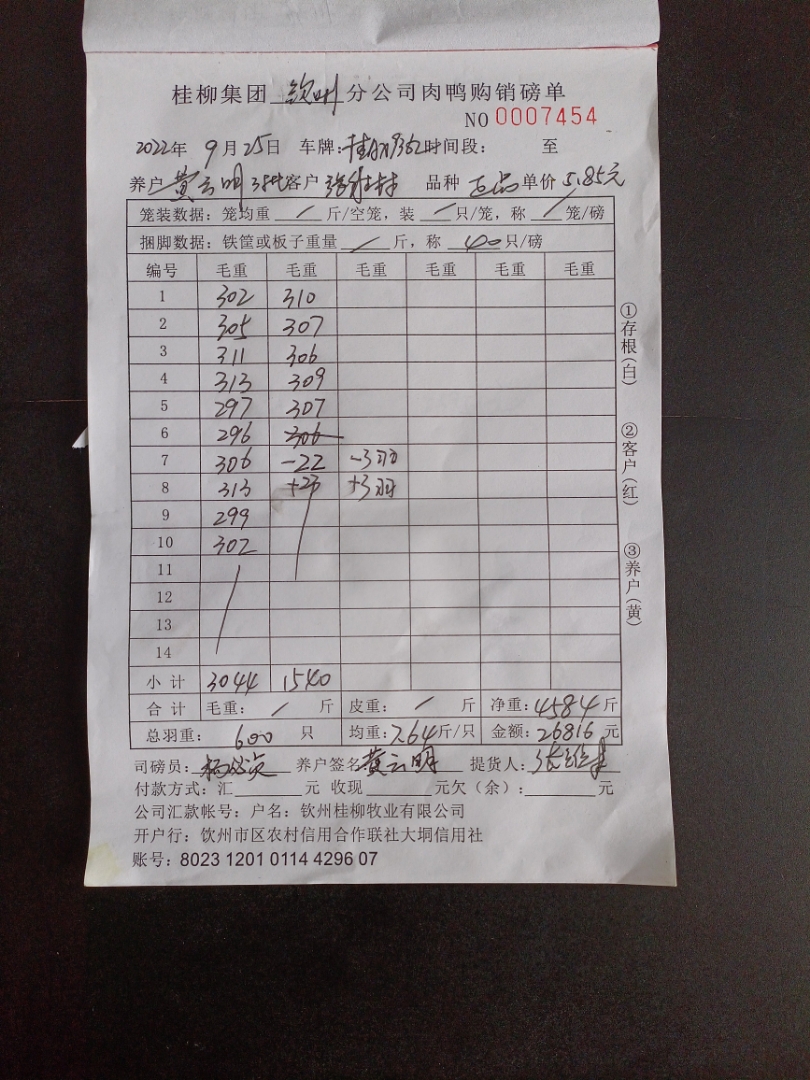 桂柳集团 钦州 分公司肉鸭购销磅单
NO 0007454
2022年 9月25日 车牌: 时间段: 至
养户 黄云明 客户 品种 正品 单价 5.85元
笼装数据: 笼均重 / 斤/空笼, 装 / 只/笼, 称 / 笼/磅
捆脚数据: 铁筐或板子重量 / 斤, 称 40 只/磅
编号 毛重 毛重 毛重 毛重 毛重 毛重
1 302 310
2 305 307
3 311 306
4 313 309
5 297 307
6 296 306
7 306 -22 -3羽
8 313 +23 +3羽
9 299
10 302
11
12
13
14
小计 3044 1540
合计 毛重: / 斤 皮重: / 斤 净重: 4584 斤
总羽重: 600 只 均重: 7.64 斤/只 金额: 26816 元
司磅员: 养户签名 黄云明 提货人:
付款方式: 汇 元 收现 元欠(余): 元
公司汇款帐号: 户名: 钦州桂柳牧业有限公司
开户行: 钦州市区农村信用合作联社大垌信用社
账号: 8023 1201 0114 4296 07
①存根(白)
②客户(红)
③养户(黄)